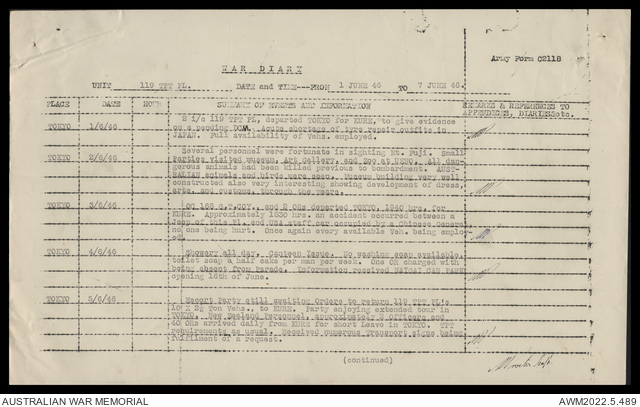 Army Form C2118
WAR DIARY
UNIT 119 TPT PL. DATE and TIME---FROM 1 JUNE 46 TO 7 JUNE 46.
PLACE DATE HOUR SUMMARY OF EVENTS AND INFORMATION REMARKS & REFERENCES TO
APPENDICES, DIARIES etc.
TOKYO 1/6/46 2 i/c 119 TPT PL, departed TOKYO for KURE, to give evidence
on a pending DCM. Acute shortage of tyre repair outfits in
JAPAN. Full availability of Vehs. employed.
TOKYO 2/6/46 Several personnel were fortunate in sighting Mt. Fuji. Small
Parties visited museum, Art Gallery, and Zoo at UENO. All dan-
gerous animals had been killed previous to bombardment. AUST-
RALIAN animals and birds were seen. Museum building very well
constructed also very interesting showing development of dress,
arts, and customs, through the years.
TOKYO 3/6/46 OC 168 G.T.COY., and 2 ORs departed TOKYO, 1940 hrs. for
KURE. Approximately 1830 hrs. an accident occurred between a
Jeep of this Pl. and USA staff car occupied by a Chinese General
no one being hurt. Once again every available Veh. being employ-
ed.
TOKYO 4/6/46 Showery all day. Canteen Issue. No washing soap available,
toilet soap a half cake per man per week. One OR charged with
being absent from Parade. Information received CAR PARK
opening 16th of June.
TOKYO 5/6/46 Escort Party still awaiting Orders to return 119 TPT PL's
10 X 2½ Ton Vehs., to KURE. Party enjoying extended tour in
TOKYO. New Zealand Personnel, approximately Officers and
40 ORs arrived daily from KURE for short Leave in TOKYO. TPT
requirements as usual. Received numerous Transport signs being
fulfilment of a request.
(continued)
AUSTRALIAN WAR MEMORIAL AWM2022.5.489